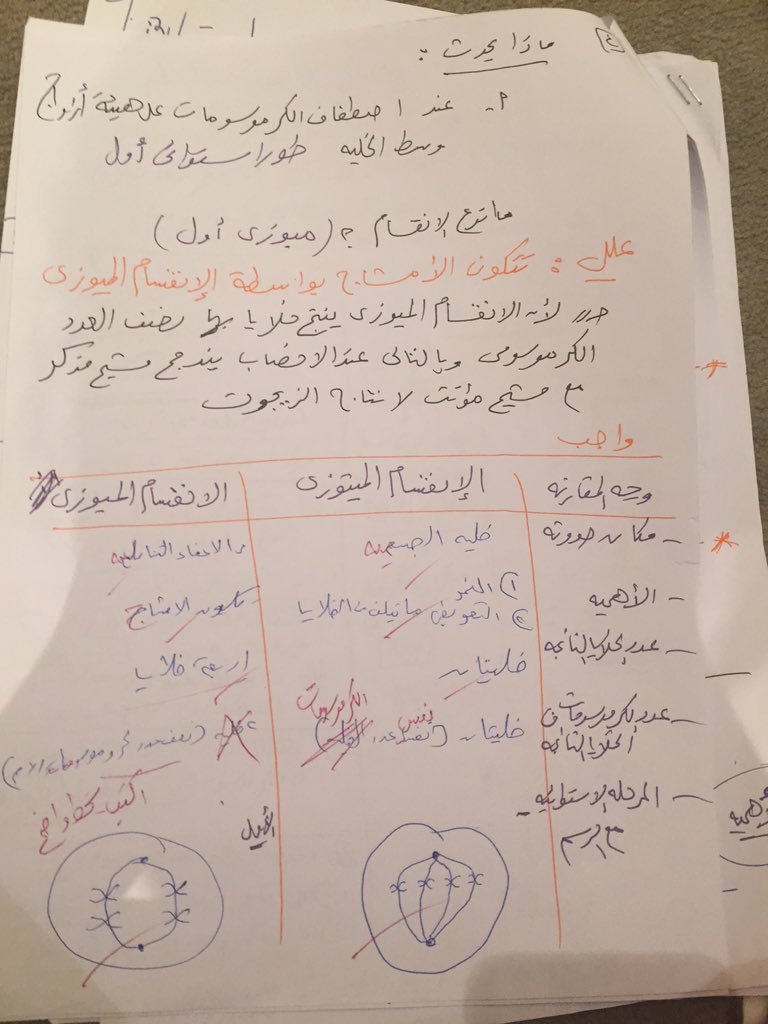 ٤
ماذا يحدث :
أ- عند اصطفاف الكرموسومات على هيئة أزواج
وسط الخليه طور استوائى أول
ما نوع الانقسام ؟ (ميوزى أول)
علل : تتكون الأمشاج بواسطة الإنقسام الميوزى
لأنه الانقسام الميوزى ينتج خلايا بها نصف العدد
الكرموسومى وبالتالى عند الاخصاب يندمج مشيج مذكر
مع مشيج مؤنث لانتاج الزيجوت
واجب
وجه المقارنه
الإنقسام الميتوزى
الانقسام الميوزى
- مكان حدوثه
خليه الجسميه
الاعضاء التناسليه
- الأهميه
١) النمو
٢) التعويض ماتيلف من الخلايا
تكوين الامشاج
- عدد الخلايا الناتجه
خليتان
اربعة خلايا
- عدد الكرموسومات فى
الخلايا الناتجه
خليتان (نفس عدد الكرموسومات)
(نصف عدد كروموسومات الام)
اكتب بخط واضح
- المرحله الاستوائيه
مع الرسم
الأول
أهميه